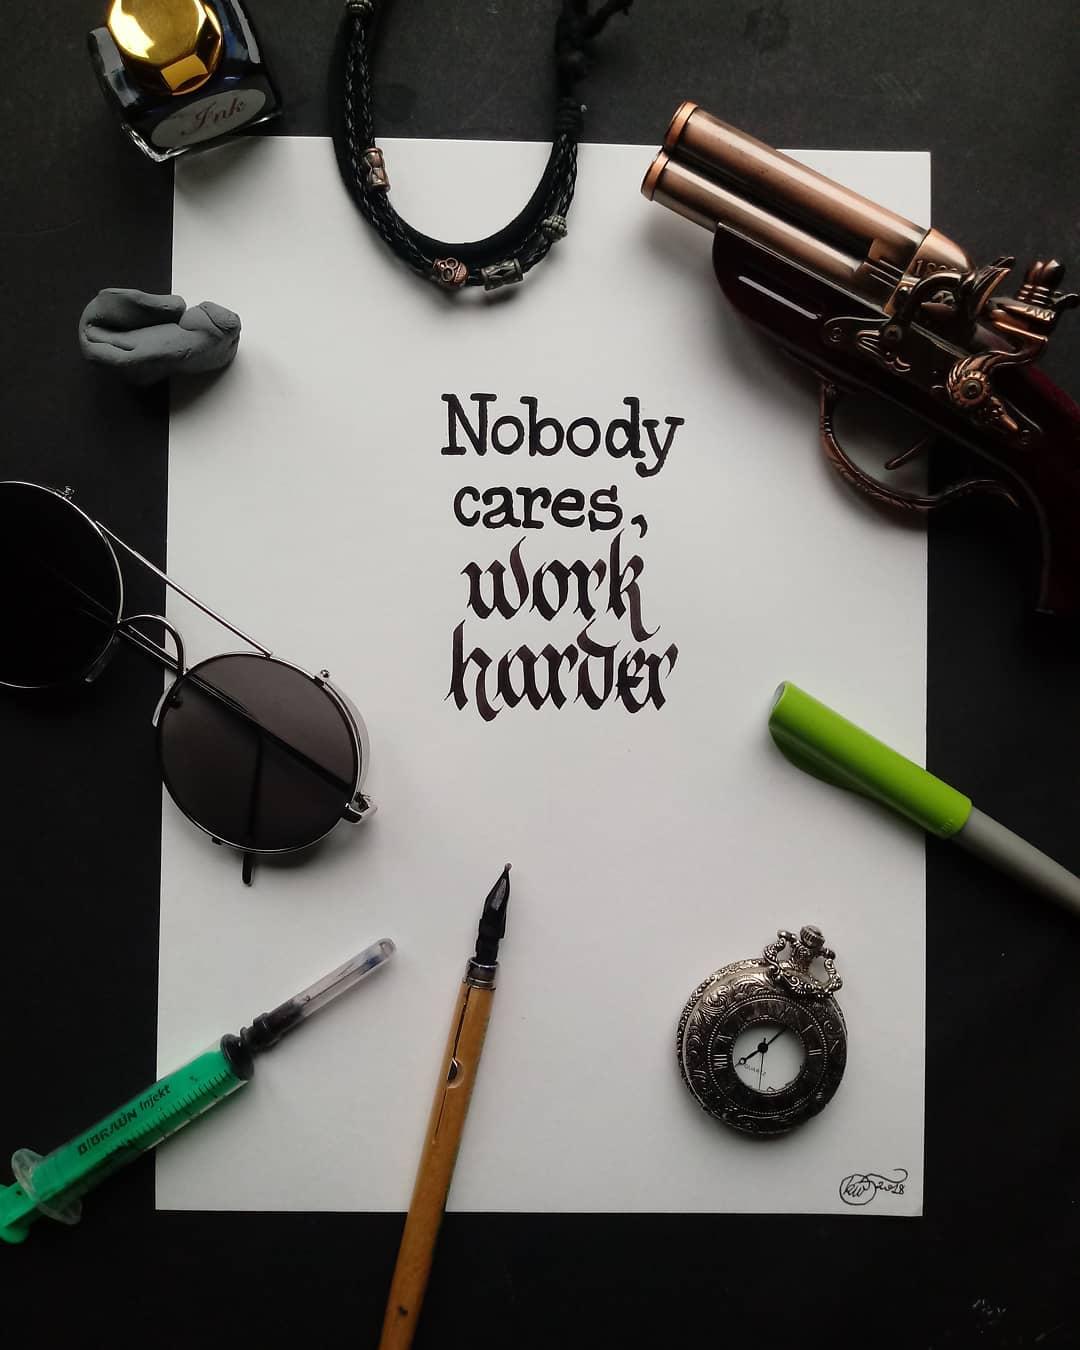 Ink
Nobody
cares,
work
harder
B|BRAUN Injekt
QUARTZ
2018